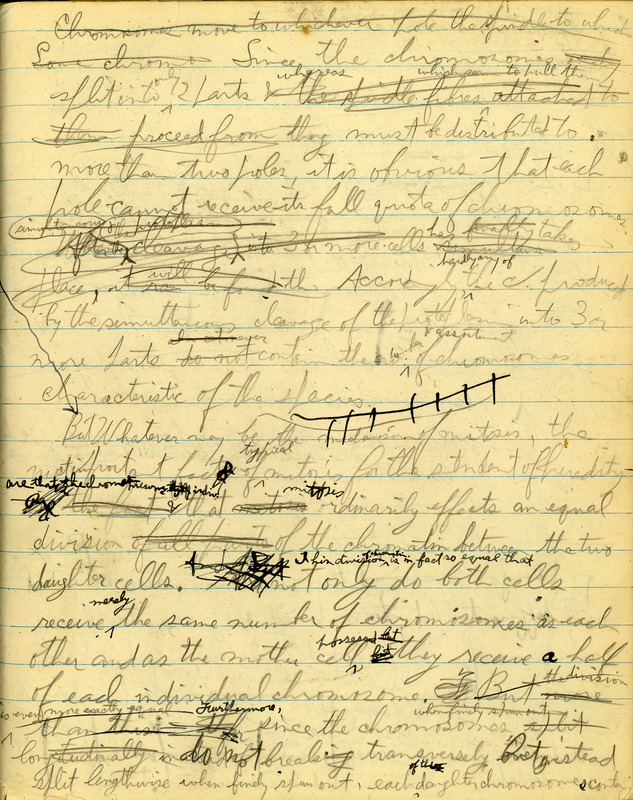 Chromosomes move to whichever pole the spindle to which
Some chromo Since the chromosomes
only whereas which seem to pull them
split into 2 parts & the spindle fibres attached to
them proceed from they must be distributed to
more than two poles, it is obvious that each
pole cannot receive its full quota of chromosomes.
simultaneous of the protoplasm
cleavage into 3 or more cells has finally taken
hardly any of
place, it will be found the Accordingly the c. produced
by the simultaneous cleavage of the protoplasm into 3 or
ever number & assortment
more parts do not contain the of chromosomes
characteristic of the species
But Whatever may be the mechanism of mitosis, the
typical
important fact of mitosis for the student of heredity
are that the chromatin
the fact that mitosis ordinarily effects an equal
division of all parts of the chromatin between the two
This division is in fact so equal that
daughter cells. not only do both cells
merely
receive the same number of chromosomes as each
possessed but
other and as the mother cell they receive a half
of each individual chromosome. But the division
is even more exactly equal Furthermore, when finely spun out
than this since the chromosomes split
longitudinally do not break transversely but instead
of the
split lengthwise when finely spun out, each daughter chromosome